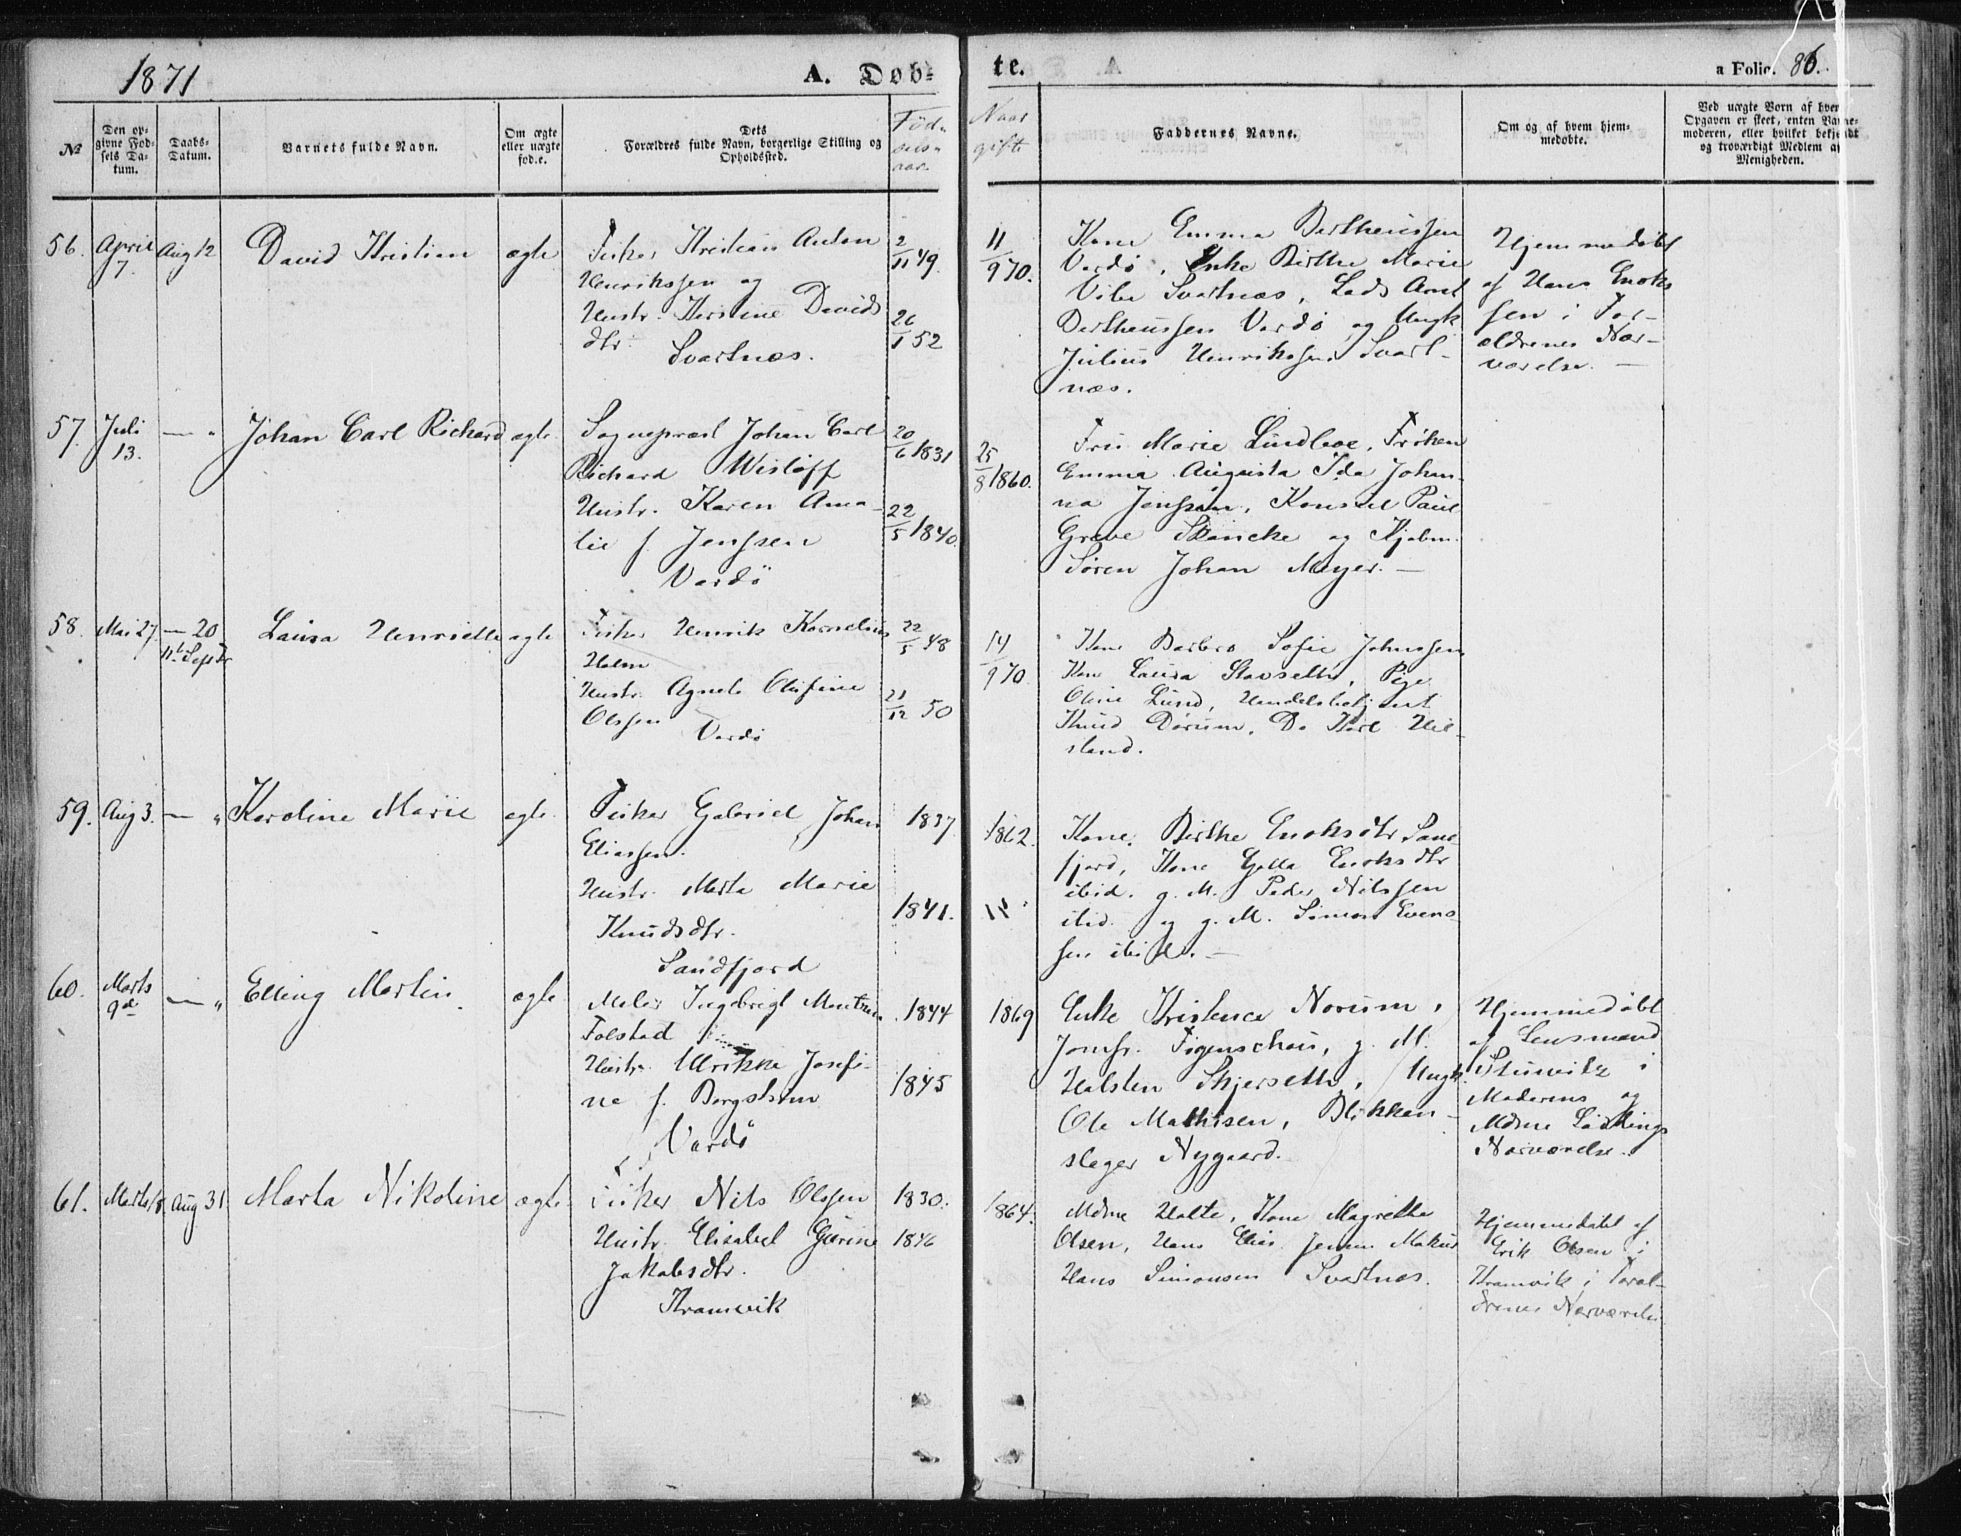 1871
A. Døb-
te.
a Folio. 86.
№
Den op-
givne Fød-
sels Da-
tum.
Daabs-
Datum.
Barnets fulde Navn.
Om ægte
eller uægte
fød.e.
Dets
Forældres fulde Navn, borgerlige Stilling og
Opholdssted.
Fød-
sels-
aar.
Naar
gifte
Faddernes Navne.
Om og af hvem hjem-
medøbte.
Ved uægte Børn af hvem
Opgaven er skeet, enten Barne-
moderen, eller hvilket bekjendt
og troværdigt Medlem af
Menigheden.
56. April
7. Aug 12 David Kristian ægte
Fisker Kristian Anton
Henrikssen og
Hustr. Kirstine Davids
dtr.
Svartnæs.
2/11 49.
26/1 52
11/9 70.
Kone Emma Bertheussen
Vardø, Enke Birthe Marie
Vibe Svartnæs, Lods Arnt
Bertheussen Vardø og Ungk
Julius Henrikssen Svart-
næs.
Hjemmedøbt
af Hans Enoks
sen i For-
ældrenes Nær-
værelse. —
57. Juli
13. — „ Johan Carl Richard ægte
Sognepræst Johan Carl
Richard Wisløff
Hustr. Karen Ama-
lie f. Jenssen
Vardö
20/6 1831
22/5 1840.
25/8 1860.
Fru Marie Lindboe, Frøken
Emma Augusta Ida Johan-
na Jenssen, Konsul Paul
Greve Skancke og Kjøbm.
Søren Johan Meyer. —
58. Mai 27. — 20 Laura Henriette ægte
Fisker Henrik Kornelius
Holm
Hustr. Agnete Olufine
Olssen
Vardö
22/5 48
21/12 50
14/9 70
Kone Barbro Sofie Johnssen,
Kone Laura Stavseth, Pige
Oline Lund, Handelsbetjent
Knud Dørum, Do Karl Hil-
sland.
59. Aug 3. — „ Karoline Marie ægte.
Fisker Gabriel Johan
Eliassen.
Hustr. Marta Marie
Knudsdtr.
Sandfjord
1837.
1841.
1862.
Kone Birthe Enoksdtr Sand
fjord, Kone Gjella Enoksdtr
ibid. g. M. Peder Nilssen
ibid. og g. M. Simon Evens-
sen ibid. —
60. Marts
9de — „ Elling Martin. ægte
Maler Ingebrigt Mentzen
Folstad
Hustr. Ulrikke Josefi-
ne f. Bergstrøm
Vardö
1844
1845
1869
Enke Kristence Norum,
Jomfr. Figenschou, g. M.
Halsten Skjerseth, Ungk.
Ole Mathisen, Blikken-
slager Nygaard.
Hjemmedøbt
af Lensmand
Stuwitz i
Moderens og
Mdme Lødings
Nærværelse.
61. Marts 18. Aug 31 Marta Nikoline ægte.
Fisker Nils Olssen
Hustr. Elisabet Gurine
Jakobsdtr.
Kramvik
1830.
1846
1864.
Mdme Holte, Kone Magrethe
Olsen, Hans Elias Jensen Makur
Hans Simonsen Svartnæs.
Hjemmedøbt af
Erik Olsen i
Kramvik i Foræl-
drenes Nærværelse.